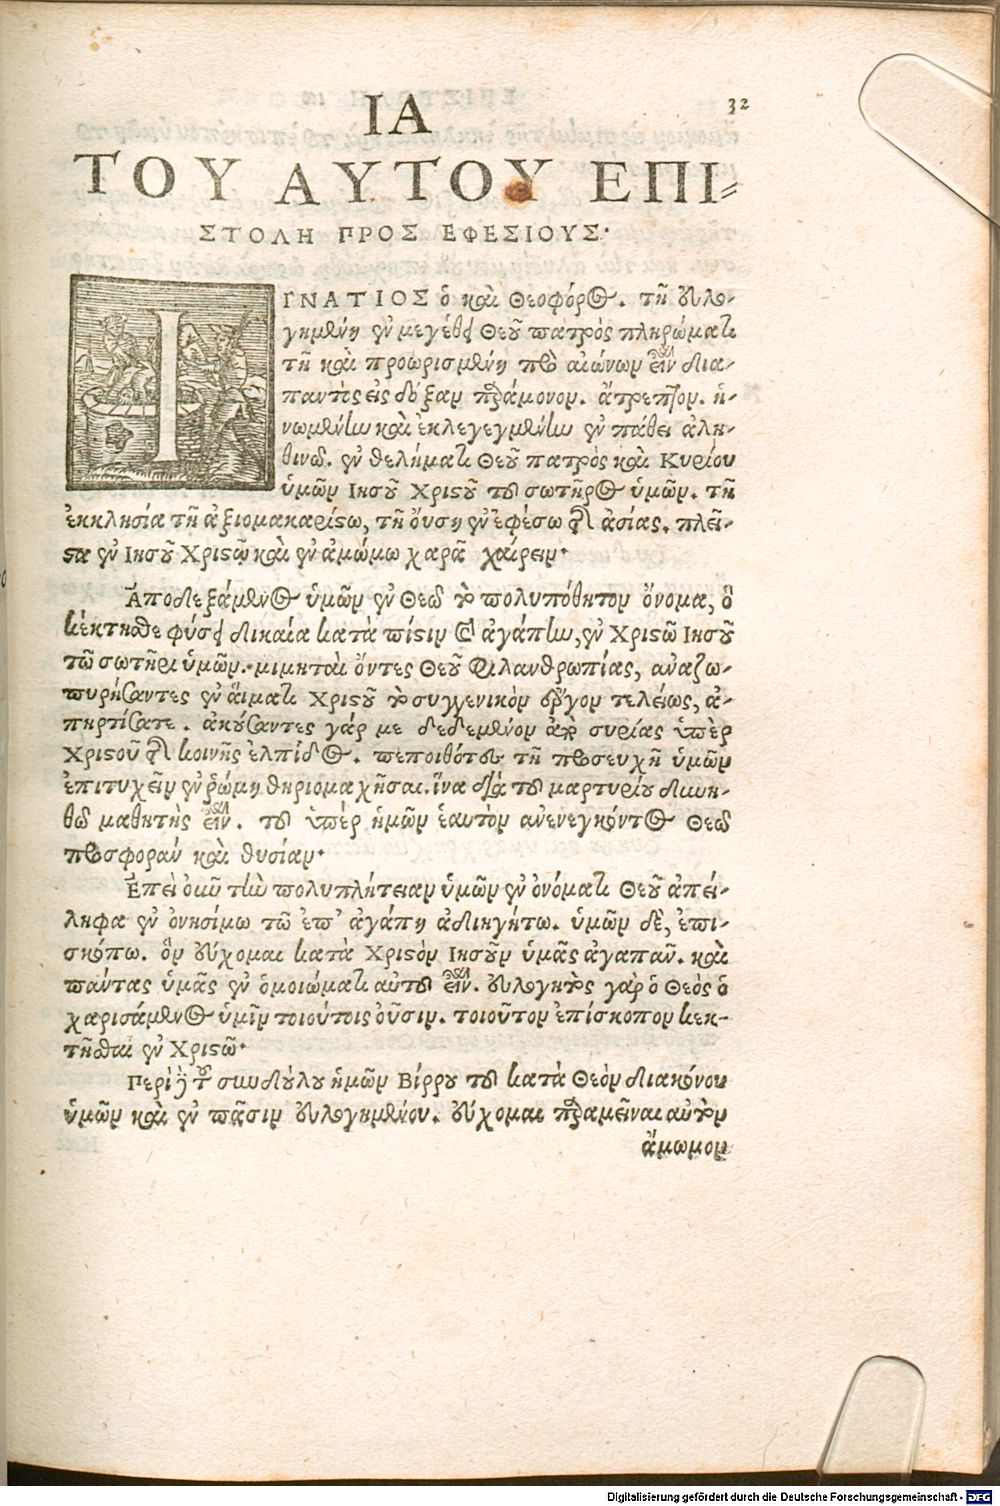 32
ΙΑ
ΤΟΥ ΑΥΤΟΥ ΕΠΙ-
ΣΤΟΛΗ ΠΡΟΣ ΕΦΕΣΙΟΥΣ·
ΙΓΝΑΤΙΟΣ ὁ καὶ Θεοφόρος. τῇ εὐλο-
γημένῃ ἐν μεγέθει Θεοῦ πατρὸς πληρώματι
τῇ καὶ προωρισμένῃ πρὸ αἰώνων εἶναι δια-
παντὸς εἰς δόξαν παράμονον. ἄτρεπτον. ἡ-
νωμένην καὶ ἐκλεγεγμένην ἐν πάθει ἀλη-
θινῷ. ἐν θελήματι Θεοῦ πατρὸς καὶ Κυρίου
ὑμῶν Ιησοῦ Χριστοῦ τοῦ σωτῆρος ὑμῶν. τῇ
ἐκκλησία τῇ ἀξιομακαρίστω, τῇ οὔσῃ ἐν ἐφέσω τῆς ἀσίας. πλεῖ-
στα ἐν Ιησοῦ Χριστῷ καὶ ἐν ἀμώμω χαρᾷ χαίρειν·
Ἀποδεξάμενος ὑμῶν ἐν Θεῷ τὸ πολυπόθητον ὄνομα, ὃ
κέκτησθε φύσει δικαία κατὰ πίστιν καὶ ἀγάπην, ἐν Χριστῶ Ιησοῦ
τῶ σωτῆρι ὑμῶν. μιμηταὶ ὄντες Θεοῦ Φιλανθρωπίας, ἀναζω-
πυρήσαντες ἐν αἵματι Χριστοῦ τὸ συγγενικὸν ἔργον τελείως, ἀ-
πηρτίσατε. ἀκούσαντες γάρ με δεδεμένον ἀπὸ συρίας ὑπὲρ
Χριστοῦ τῆς κοινῆς ἐλπίδος. πεποιθότα τῇ προσευχῇ ὑμῶν
ἐπιτυχεῖν ἐν ῥώμῃ θηριομαχῆσαι. ἵνα διὰ τοῦ μαρτυρίου δυνη-
θῶ μαθητὴς εἶναι. τοῦ ὑπὲρ ἡμῶν ἑαυτὸν ἀνενεγκόντος Θεῷ
προσφορὰν καὶ θυσίαν·
Ἐπεὶ οὖν τὴν πολυπλήτειαν ὑμῶν ἐν ὀνόματι Θεοῦ ἀπεί-
ληφα ἐν ὀνησίμω τῶ ἐπ' ἀγάπῃ ἀδιηγήτω. ὑμῶν δὲ, ἐπι-
σκόπω. ὃν εὔχομαι κατὰ Χριστὸν Ιησοῦν ὑμᾶς ἀγαπᾶν. καὶ
πάντας ὑμᾶς ἐν ὁμοιώματι αὐτοῦ εἶναι. εὐλογητὸς γὰρ ὁ Θεὸς ὁ
χαρισάμενος ὑμῖν τοιούτοις οὖσιν. τοιοῦτον ἐπίσκοπον κεκ-
τῆσθαι ἐν Χριστῶ·
Περὶ δὲ τοῦ συνδούλου ἡμῶν Βίρρου τοῦ κατὰ Θεὸν διακόνου
ὑμῶν καὶ ἐν πᾶσιν εὐλογημένου. εὔχομαι παραμεῖναι αὐτὸν
ἄμωμον
Digitalisierung gefördert durch die Deutsche Forschungsgemeinschaft - DFG